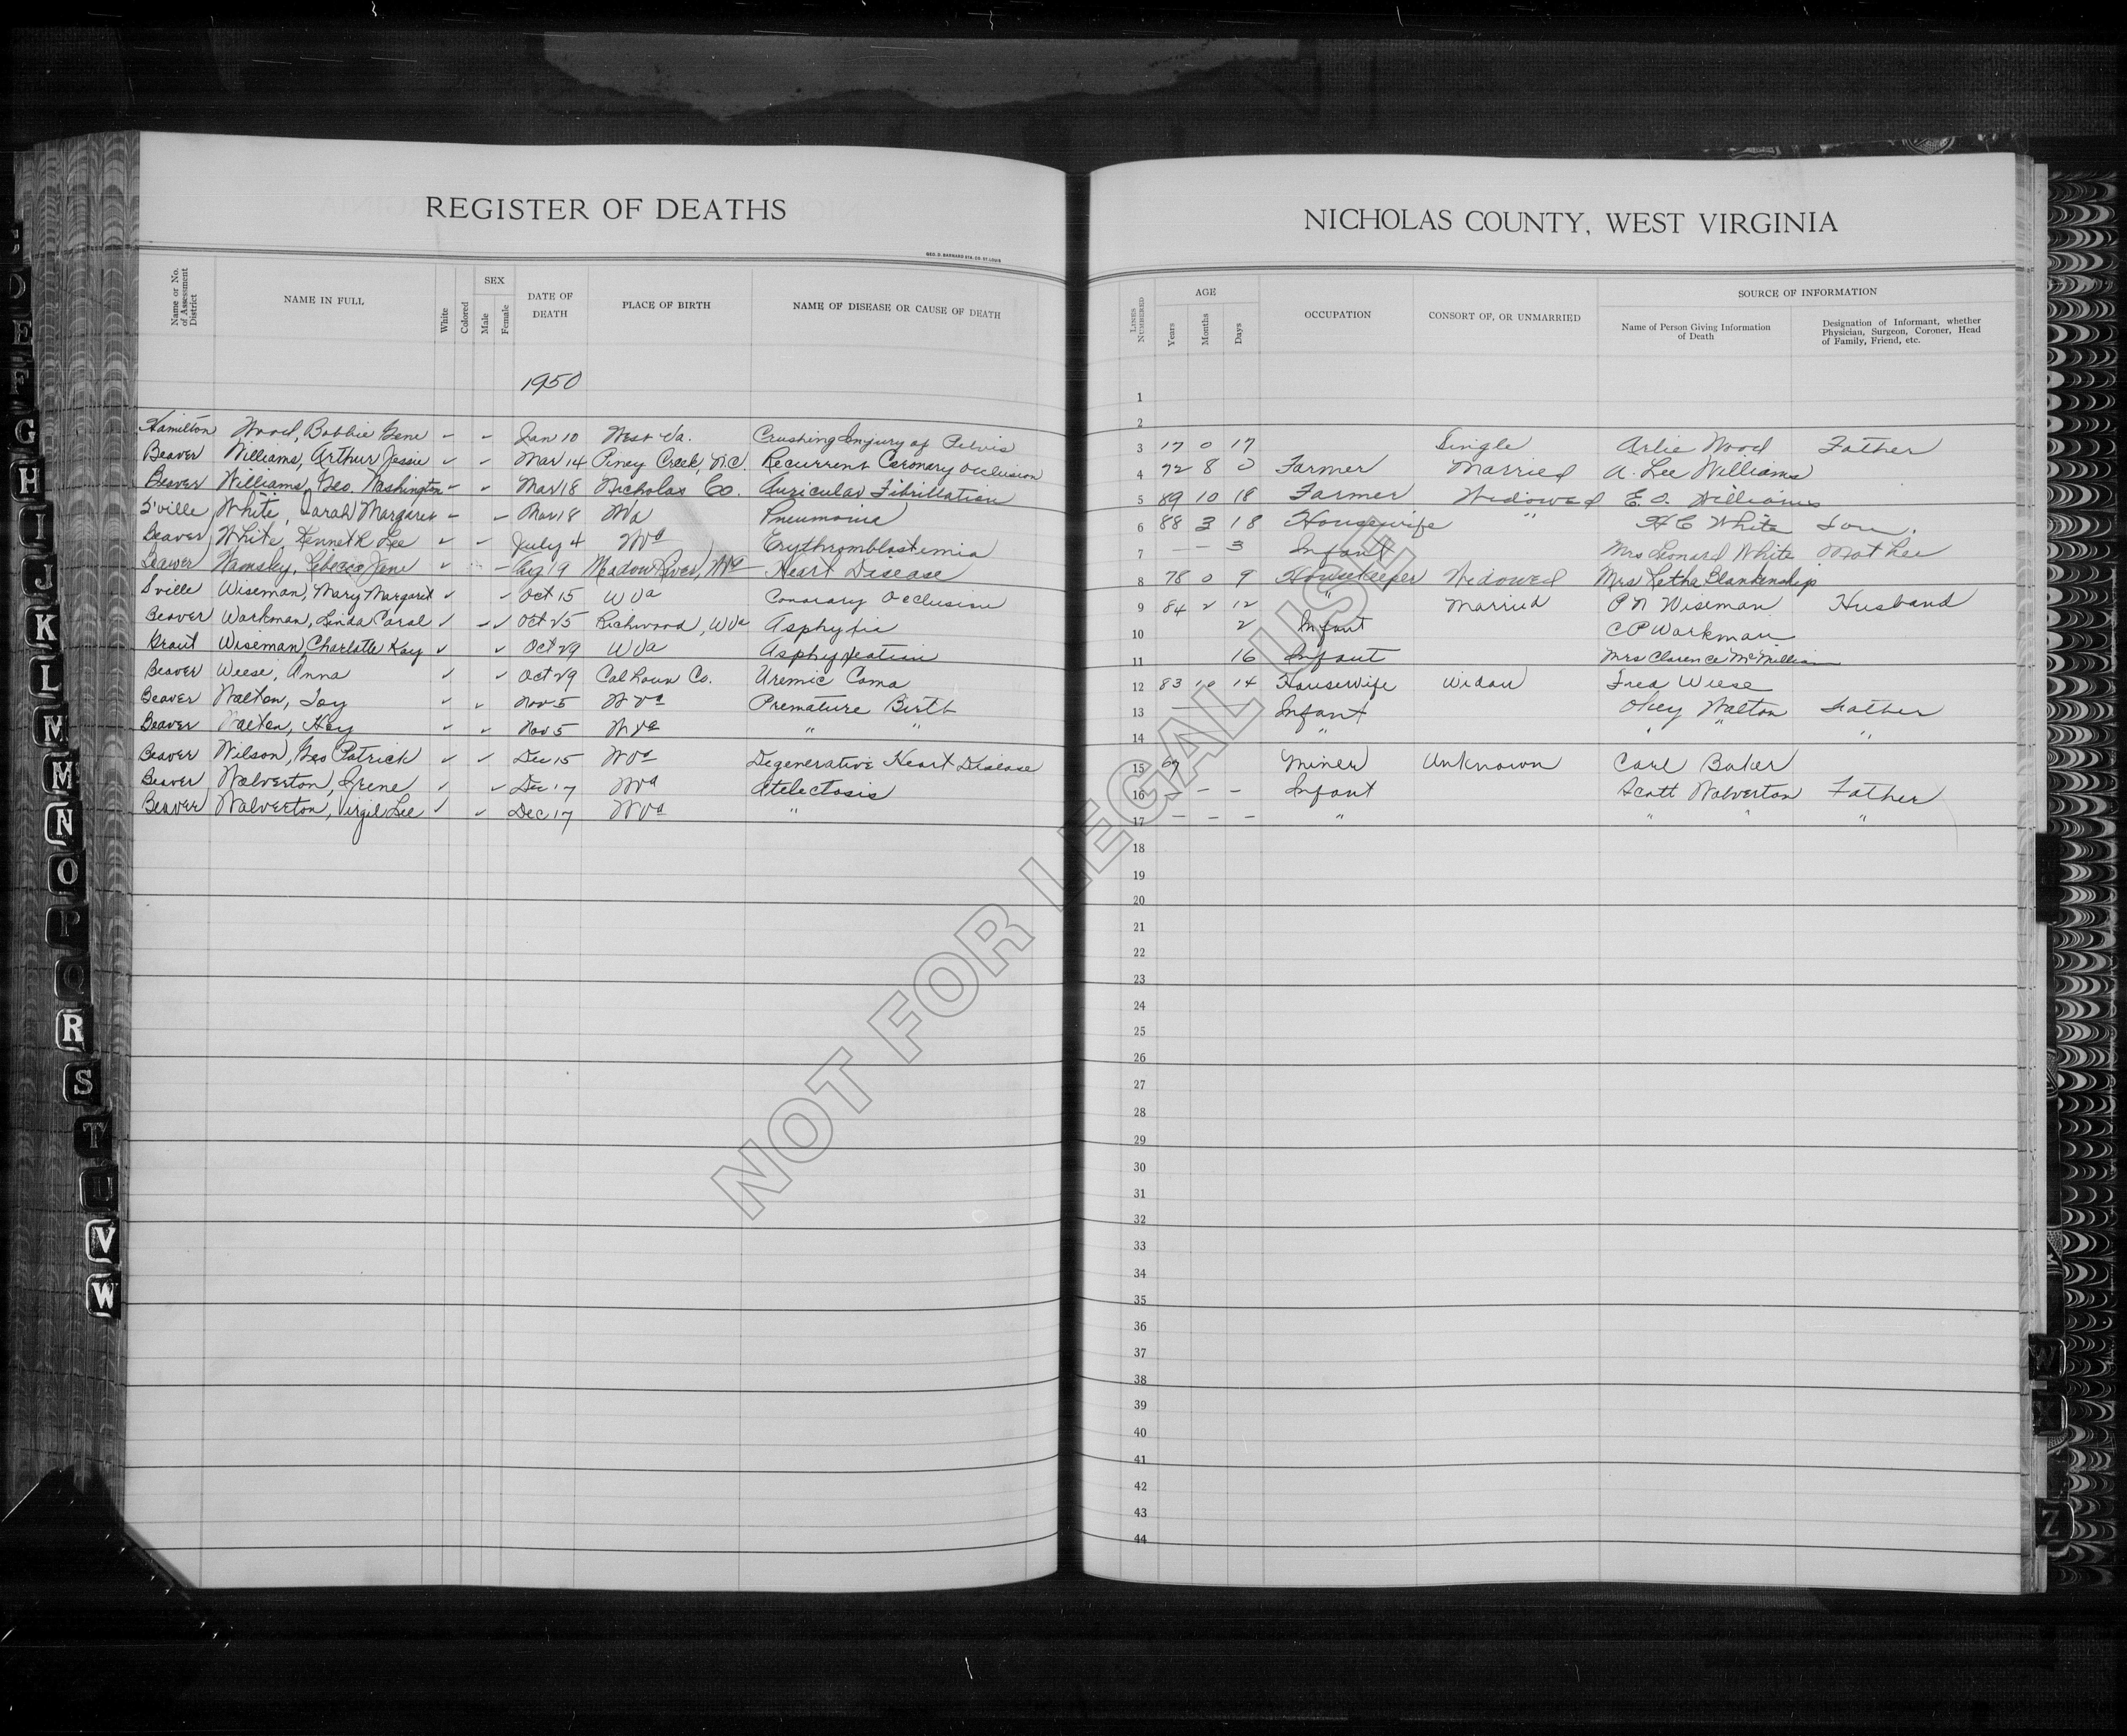 REGISTER OF DEATHS
NICHOLAS COUNTY, WEST VIRGINIA
GEO. D. BARNARD STA. CO. ST. LOUIS
Name or No. of Assessment District
NAME IN FULL
White
Colored
SEX
Male
Female
DATE OF DEATH
PLACE OF BIRTH
NAME OF DISEASE OR CAUSE OF DEATH
LINES NUMBERED
AGE
Years
Months
Days
OCCUPATION
CONSORT OF, OR UNMARRIED
SOURCE OF INFORMATION
Name of Person Giving Information of Death
Designation of Informant, whether Physician, Surgeon, Coroner, Head of Family, Friend, etc.
1950
1
2
Hamilton Wood, Bobbie Gene - - Jan 10 West Va. Crushing Injury of Pelvis 3 17 0 17 Single Arlie Wood Father
Beaver Williams, Arthur Jessie ✓ - Mar 14 Piney Creek, N.C. Recurrent Coronary Occlusion 4 72 8 0 Farmer Married A. Lee Williams
Beaver Williams, Geo. Washington - - Mar 18 Nicholas Co. Auricular Fibrillation 5 89 10 18 Farmer Widowed E. O. Williams
S'ville White, Sarah Margaret - - Mar 18 WVa Pneumonia 6 88 3 18 Housewife " H C White Son.
Beaver White, Kenneth Lee ✓ - July 4 WVa Erythromblastemia 7 — — 3 Infant Mrs Leonard White Mother
Beaver Wamsley, Rebecca Jane ✓ - Aug 19 Meadow River, WVa Heart Disease 8 78 0 9 Housekeeper Widowed Mrs Letha Blankenship
S'ville Wiseman, Mary Margaret ✓ ✓ Oct 15 WVa Conorary Occlusion 9 84 2 12 " Married P N Wiseman Husband
Beaver Workman, Linda Carol ✓ ✓ ✓ Oct 25 Richwood, WVa Asphyxia 10 2 Infant C P Workman
Grant Wiseman, Charlotte Kay ✓ ✓ Oct 29 WVa Asphyxiation 11 16 Infant Mrs Clarence McMillian
Beaver Weese, Anna ✓ ✓ Oct 29 Calhoun Co. Uremic Coma 12 83 10 14 Housewife Widow Fred Weese
Beaver Walton, Joy ✓ ✓ Nov 5 WVa Premature Birth 13 — Infant Okey Walton Father
Beaver Walton, Hoy ✓ ✓ Nov 5 WVa " " 14 " " " "
Beaver Wilson, Geo Patrick ✓ ✓ Dec 15 WVa Degenerative Heart Disease 15 67 Miner Unknown Carl Baker
Beaver Wolverton, Irene ✓ ✓ Dec 17 WVa Atelectosis 16 – – – Infant Scott Wolverton Father
Beaver Wolverton, Virgil Lee ✓ ✓ Dec 17 WVa " 17 – – – " " " "
18
19
20
21
22
23
24
25
26
27
28
29
30
31
32
33
34
35
36
37
38
39
40
41
42
43
44
NOT FOR LEGAL USE
E
F
G
H
I
J
K
L
M
M
N
O
P
Q
R
S
T
U
V
W
W
X
Z